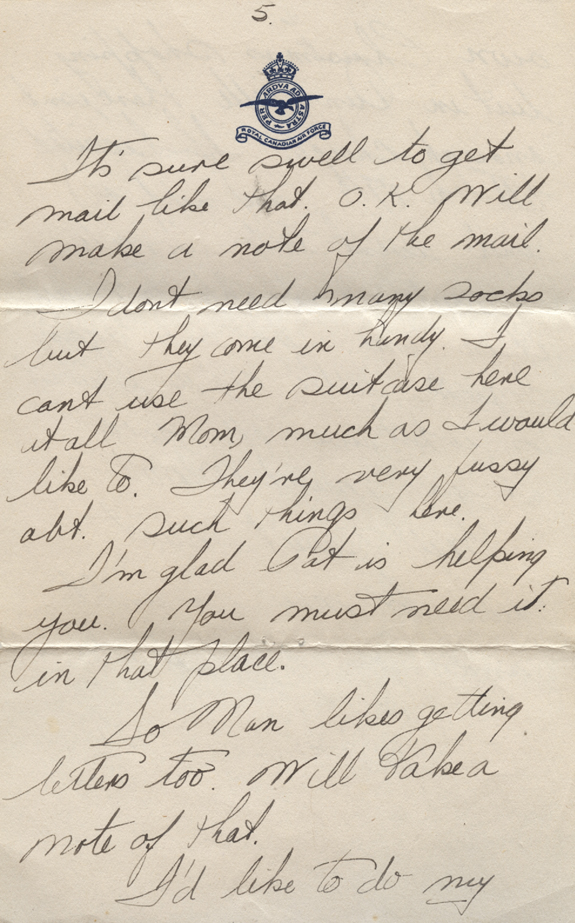 5.
PER ARDVA AD ASTRA
ROYAL CANADIAN AIR FORCE
It's sure swell to get
mail like that. O.K. Will
make a note of the mail.
I dont need many socks
but they come in handy. I
cant use the suitcase here
at all Mom, much as I would
like to. They're very fussy
abt. such things here.
I'm glad Pat is helping
you. You must need it
in that place.
So Man likes getting
letters too. Will take a
note of that.
I'd like to do my